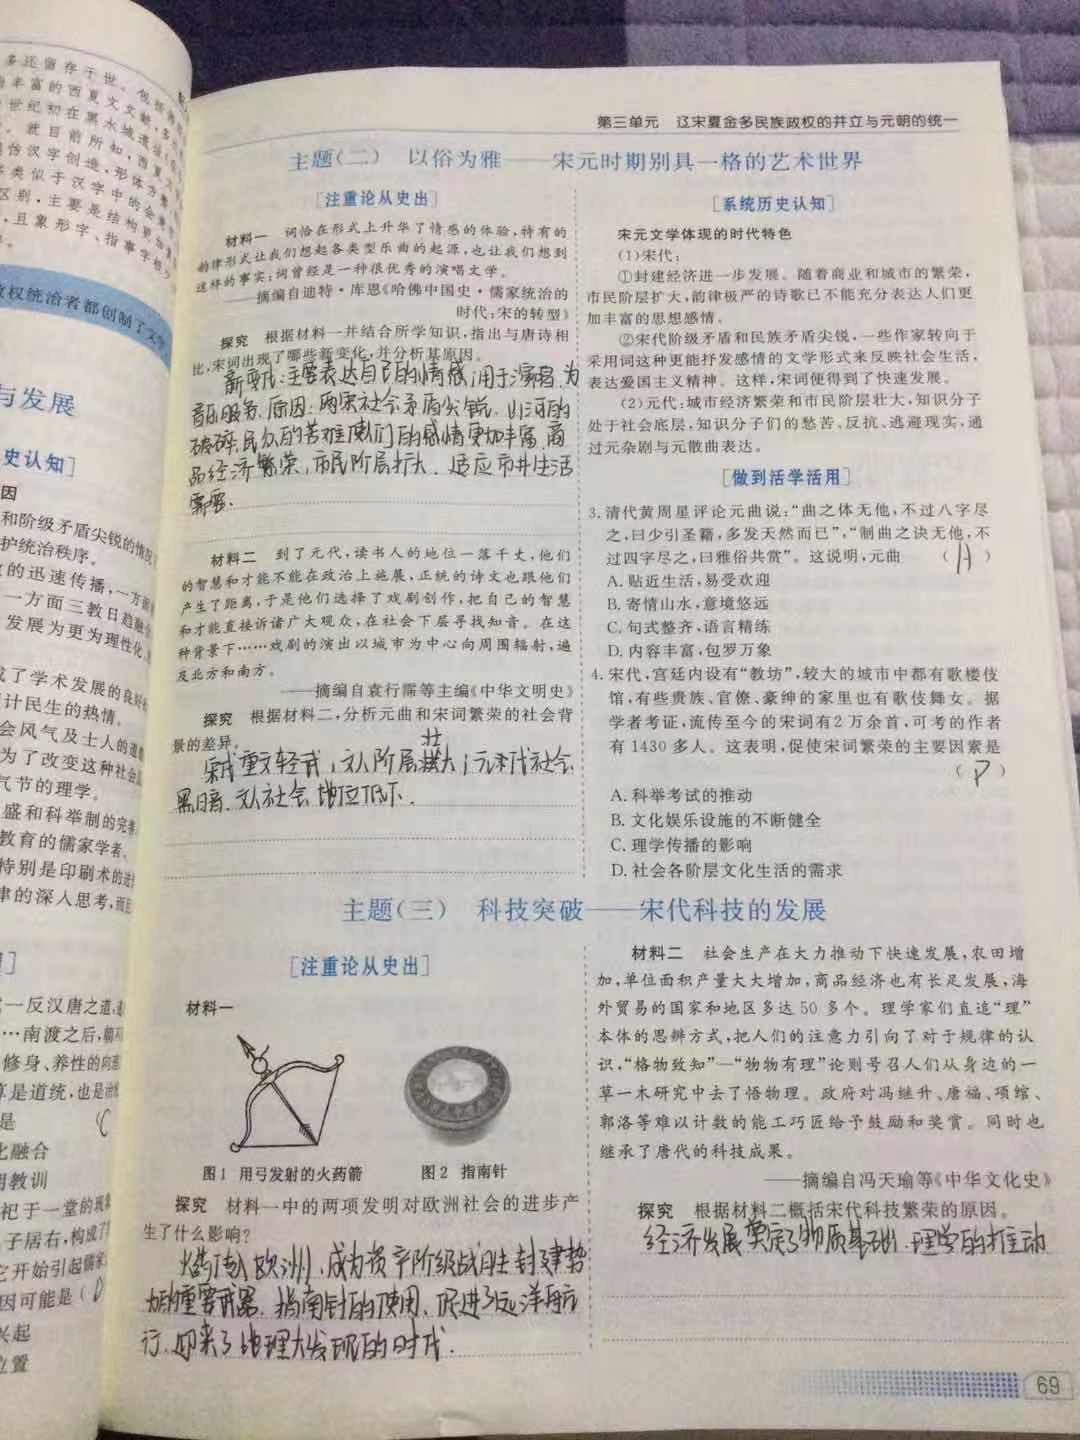 多还留存于世。
丰富的西夏文文献
世纪初在黑水城遗址
就目前所知，西夏
汉字创造，形体方
类似于汉字中的会
区别，主要是结构更加
且象形字、指事字极少
权统治者都创制了文字
与发展
史认知]
因
和阶级矛盾尖锐的情况
护统治秩序。
的迅速传播，一方面
一方面三教日趋融合
发展为更为理性化
成了学术发展的良好
计民生的热情。
会风气及士人的道德
为了改变这种社会
气节的理学。
盛和科举制的完善
教育的儒家学者。
特别是印刷术的进
律的深入思考，而且
一反汉唐之道
…南渡之后
修身、养性的向
算是道统，也是治
是
C
化融合
明教训
祀于一堂的现象
子居右，构成了
它开始引起儒家
因可能是(D
兴起
位置
第三单元 辽宋夏金多民族政权的并立与元朝的统一
主题(二) 以俗为雅——宋元时期别具一格的艺术世界
[注重论从史出]
材料一 词恰在形式上升华了情感的体验，特有的
韵律形式让我们想起各类型乐曲的起源，也让我们想到
这样的事实：词曾经是一种很优秀的演唱文学。
——摘编自迪特·库恩《哈佛中国史·儒家统治的
时代：宋的转型》
探究 根据材料一并结合所学知识，指出与唐诗相
比，宋词出现了哪些新变化，并分析其原因。
新变化：主要表达自己的情感，用于演唱，为
音乐服务。原因：两宋社会矛盾尖锐，山河的
破碎，民众的苦难使他们的感情更加丰富，商
品经济繁荣，市民阶层扩大，适应市井生活
需要。
材料二 到了元代，读书人的地位一落千丈，他们
的智慧和才能不能在政治上施展，正统的诗文也跟他们
产生了距离，于是他们选择了戏剧创作，把自己的智慧
和才能直接诉诸广大观众，在社会下层寻找知音。在这
种背景下……戏剧的演出以城市为中心向周围辐射，遍
及北方和南方。
——摘编自袁行霈等主编《中华文明史》
探究 根据材料二，分析元曲和宋词繁荣的社会背
景的差异。
壮
宋代重文轻武，文人阶层大；元代社会
黑暗，文人社会地位低下。
[系统历史认知]
宋元文学体现的时代特色
(1)宋代：
①封建经济进一步发展。随着商业和城市的繁荣，
市民阶层扩大，韵律极严的诗歌已不能充分表达人们更
加丰富的思想感情。
②宋代阶级矛盾和民族矛盾尖锐，一些作家转向于
采用词这种更能抒发感情的文学形式来反映社会生活，
表达爱国主义精神。这样，宋词便得到了快速发展。
(2)元代：城市经济繁荣和市民阶层壮大，知识分子
处于社会底层，知识分子们的愁苦、反抗、逃避现实，通
过元杂剧与元散曲表达。
[做到活学活用]
3. 清代黄周星评论元曲说：“曲之体无他，不过八字尽
之，曰少引圣籍，多发天然而已”，“制曲之诀无他，不
过四字尽之，曰雅俗共赏”。这说明，元曲 (A)
A. 贴近生活，易受欢迎
B. 寄情山水，意境悠远
C. 句式整齐，语言精练
D. 内容丰富，包罗万象
4. 宋代，宫廷内设有“教坊”，较大的城市中都有歌楼伎
馆，有些贵族、官僚、豪绅的家里也有歌伎舞女。据
学者考证，流传至今的宋词有2万余首，可考的作者
有1430多人。这表明，促使宋词繁荣的主要因素是
(D)
A. 科举考试的推动
B. 文化娱乐设施的不断健全
C. 理学传播的影响
D. 社会各阶层文化生活的需求
主题(三) 科技突破——宋代科技的发展
[注重论从史出]
材料一
图1 用弓发射的火药箭
图2 指南针
探究 材料一中的两项发明对欧洲社会的进步产
生了什么影响？
火药传入欧洲，成为资产阶级战胜封建势
力的重要武器。指南针的使用，促进了远洋航
行，迎来了地理大发现的时代。
材料二 社会生产在大力推动下快速发展，农田增
加，单位面积产量大大增加，商品经济也有长足发展，海
外贸易的国家和地区多达50多个。理学家们直追“理”
本体的思辨方式，把人们的注意力引向了对于规律的认
识，“格物致知”—“物物有理”论则号召人们从身边的一
草一木研究中去了悟物理。政府对冯继升、唐福、项绾、
郭洛等难以计数的能工巧匠给予鼓励和奖赏。同时也
继承了唐代的科技成果。
——摘编自冯天瑜等《中华文化史》
探究 根据材料二概括宋代科技繁荣的原因。
经济发展奠定了物质基础，理学的推动
69